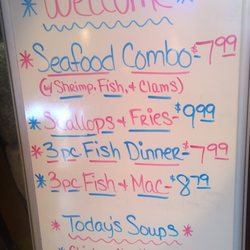 Welcome
* Seafood Combo-$7.99
(w/ Shrimp, Fish, & Clams)
* Scallops & Fries-$9.99
* 3pc Fish Dinner-$7.99
* 3pc Fish & Mac-$8.79
* Today's Soups *